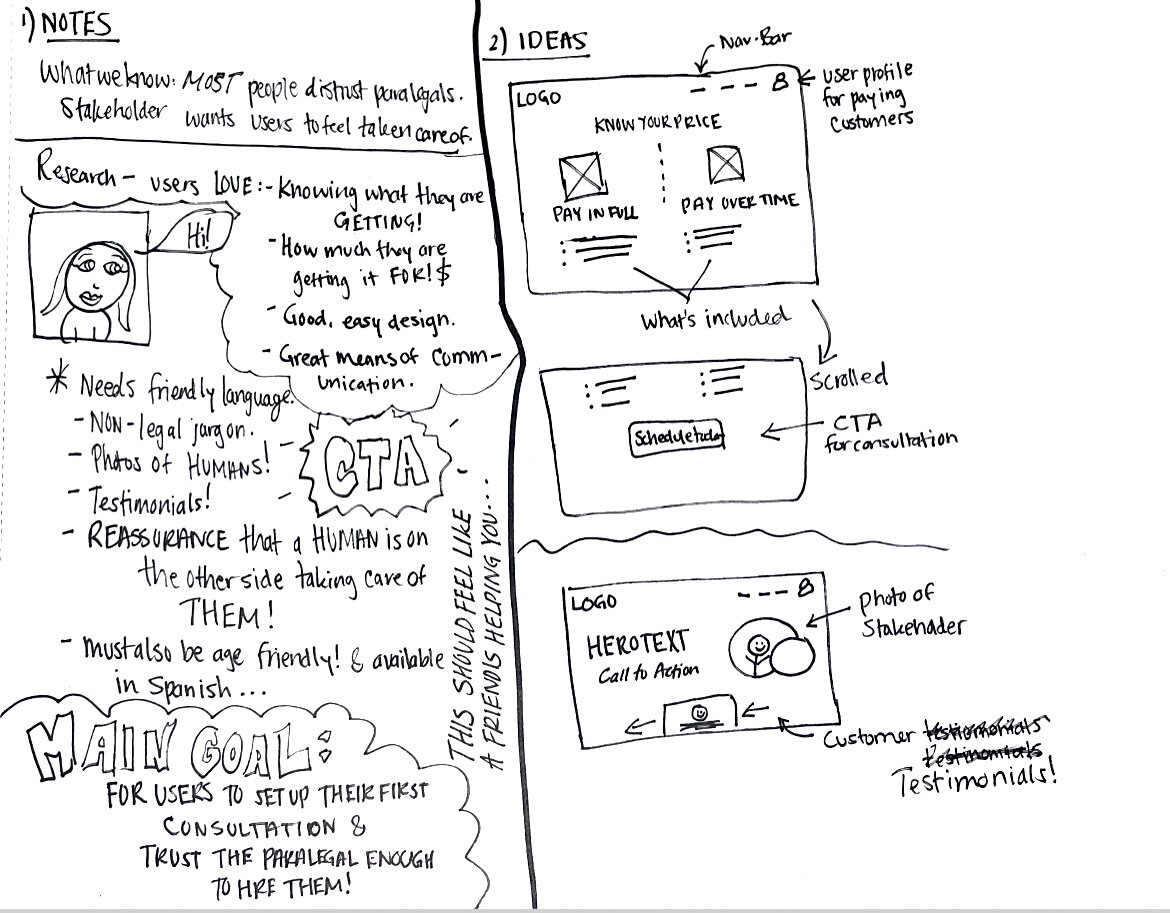 1) NOTES
What we know: MOST people distrust paralegals.
Stakeholder wants users to feel taken care of.
Research - users LOVE: - Knowing what they are
GETTING!
- How much they are
getting it FOR! $
- Good, easy design.
- Great means of comm-
unication.
Hi!
* Needs friendly language.
- NON-legal jargon.
- Photos of HUMANS!
- Testimonials!
- REASSURANCE that a HUMAN is on
the other side taking care of
THEM!
- must also be age friendly! & available
in Spanish...
CTA
THIS SHOULD FEEL LIKE
A FRIEND IS HELPING YOU...
MAIN GOAL:
FOR USERS TO SET UP THEIR FIRST
CONSULTATION &
TRUST THE PARALEGAL ENOUGH
TO HIRE THEM!
2) IDEAS
Nav-Bar
user profile
for paying
customers
LOGO
KNOW YOUR PRICE
PAY IN FULL
PAY OVER TIME
What's included
Scrolled
Schedule today
CTA
for consultation
LOGO
HERO TEXT
Call to Action
Photo of
Stakeholder
Customer testiomonials
testinomials
Testimonials!